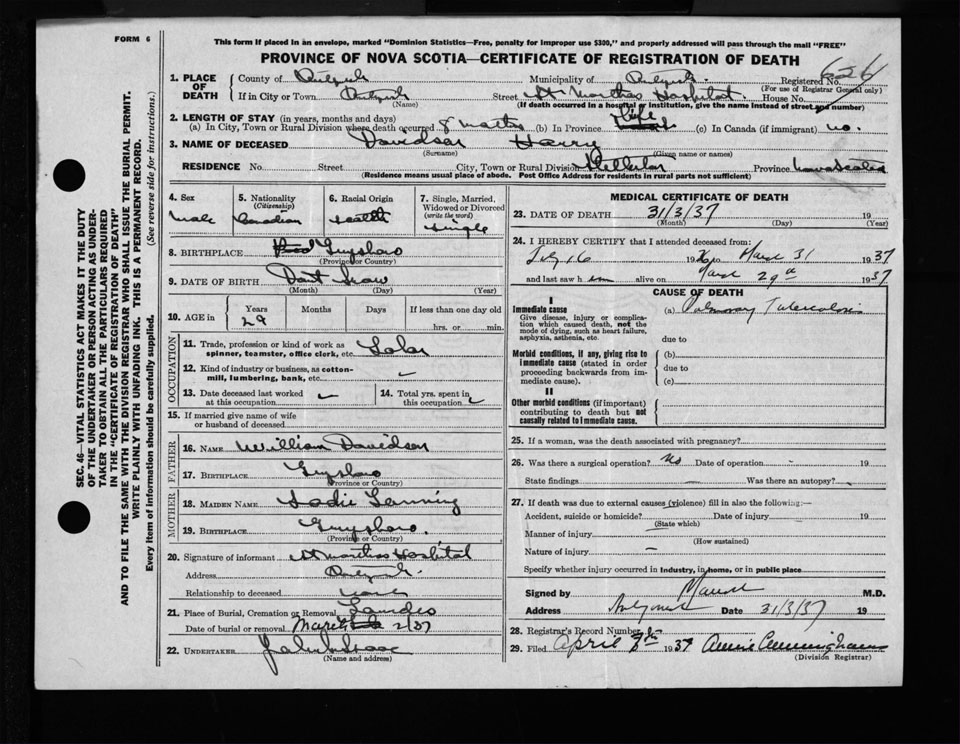 FORM 6
This form if placed in an envelope, marked "Dominion Statistics—Free, penalty for improper use $300," and properly addressed will pass through the mail "FREE"
PROVINCE OF NOVA SCOTIA—CERTIFICATE OF REGISTRATION OF DEATH
SEC. 46—VITAL STATISTICS ACT MAKES IT THE DUTY
OF THE UNDERTAKER OR PERSON ACTING AS UNDER-
TAKER TO OBTAIN ALL THE PARTICULARS REQUIRED
IN THE "CERTIFICATE OF REGISTRATION OF DEATH"
AND TO FILE THE SAME WITH THE DIVISION REGISTRAR WHO SHALL ISSUE THE BURIAL PERMIT.
WRITE PLAINLY WITH UNFADING INK. THIS IS A PERMANENT RECORD.
Every item of information should be carefully supplied. (See reverse side for instructions.)
1. PLACE OF DEATH
County of Municipality of Registered No. 626
(For use of Registrar General only)
If in City or Town Street St Marthas Hospital House No.
(Name) (If death occurred in a hospital or institution, give the name instead of street and number)
2. LENGTH OF STAY (in years, months and days)
(a) In City, Town or Rural Division where death occurred 8 (b) In Province life (c) In Canada (if immigrant) no.
3. NAME OF DECEASED Davidson Harry
(Surname) (Given name or names)
RESIDENCE No. Street City, Town or Rural Division Province Nova Scotia
(Residence means usual place of abode. Post Office Address for residents in rural parts not sufficient)
4. Sex
male
5. Nationality
(Citizenship)
Canadian
6. Racial Origin
7. Single, Married,
Widowed or Divorced
(write the word)
single
8. BIRTHPLACE Guysboro
(Province or Country)
9. DATE OF BIRTH Dont
(Month) (Day) (Year)
10. AGE in Years Months Days If less than one day
29 hrs. or min.
OCCUPATION
11. Trade, profession or kind of work as
spinner, teamster, office clerk, etc.
12. Kind of industry or business, as cotton-
mill, lumbering, bank, etc.
13. Date deceased last worked
at this occupation
14. Total yrs. spent in
this occupation
15. If married give name of wife
or husband of deceased
FATHER
16. NAME William Davidson
17. BIRTHPLACE Guysboro
(Province or Country)
MOTHER
18. MAIDEN NAME Sadie
19. BIRTHPLACE Guysboro.
(Province or Country)
20. Signature of informant St Marthas Hospital
Address
Relationship to deceased
21. Place of Burial, Cremation or Removal
Date of burial or removal 2/37
22. UNDERTAKER
(Name and address)
MEDICAL CERTIFICATE OF DEATH
23. DATE OF DEATH 31/3/37 19
(Month) (Day) (Year)
24. I HEREBY CERTIFY that I attended deceased from:
July 16 193 to March 31 1937
and last saw h im alive on March 29th 1937
CAUSE OF DEATH
I
Immediate cause (a) Pulmonary Tuberculosis
Give disease, injury or compli-
cation which caused death, not the
mode of dying, such as heart failure,
asphyxia, asthenia, etc.
due to
Morbid conditions, if any, giving rise to
immediate cause (stated in order
proceeding backwards from im-
mediate cause).
(b)
due to
(c)
II
Other morbid conditions (if important)
contributing to death but not
causally related to immediate cause.
25. If a woman, was the death associated with pregnancy?
26. Was there a surgical operation? No Date of operation 19
State findings Was there an autopsy?
27. If death was due to external causes (violence) fill in also the following:—
Accident, suicide or homicide? Date of injury 19
(State which)
Manner of injury
(How sustained)
Nature of injury
Specify whether injury occurred in industry, in home, or in public place
Signed by M.D.
Address Date 31/3/37 19
28. Registrar's Record Number
29. Filed April 1937 Annie Cunningham
(Division Registrar)